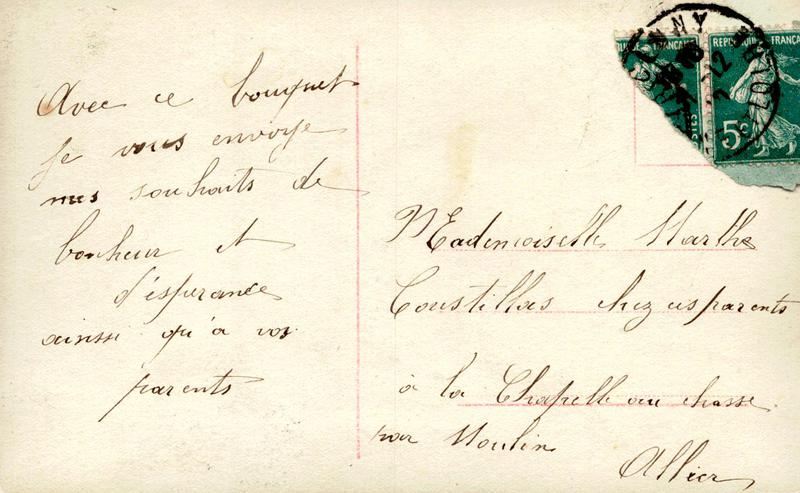 Avec ce bouquet
je vous envoye
mes souhaits de
bonheur et
d'esperance
ainsi qu'a vos
parents
REPUBLIQUE FRANÇA
FRANÇAISE
5c
Mademoiselle Marthe
Coustillas chez ses parents
à la Chapelle au chasse
par Moulin
Allier